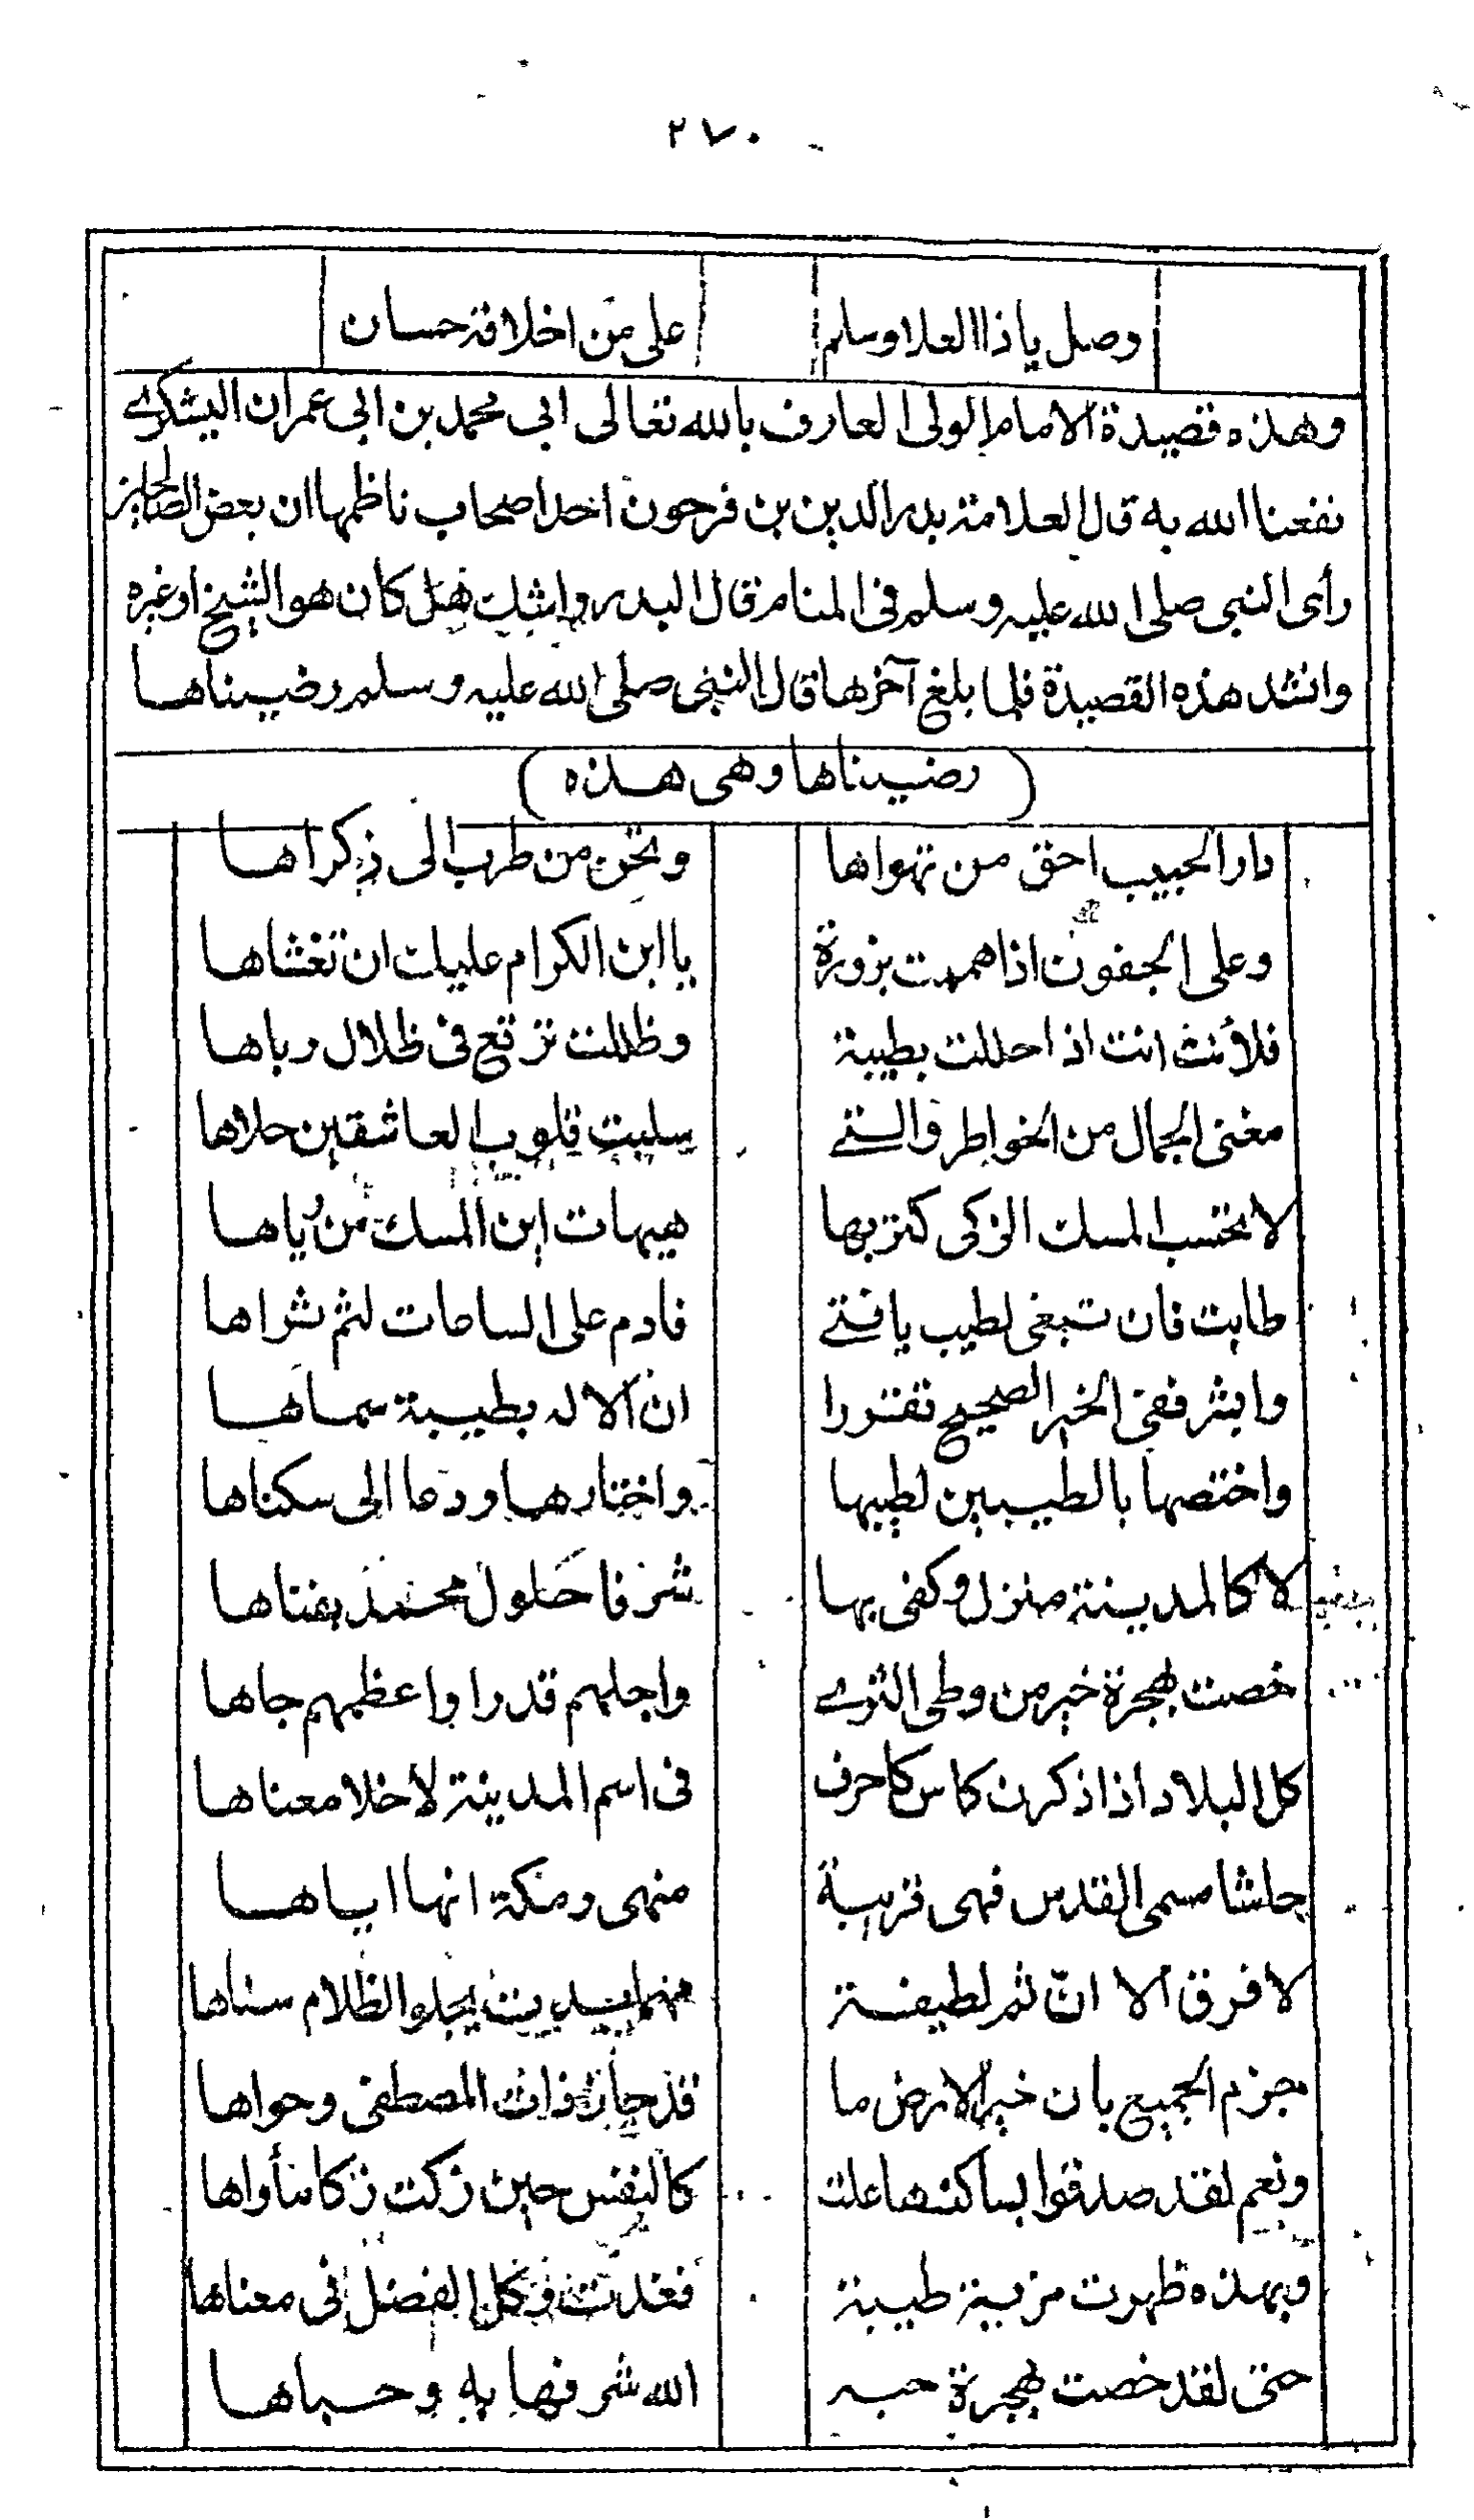 ٢٧٠
وصل ياذا العلا وسلم على من اخلاقه حسان
وهذه قصيدة الامام الولى العارف بالله تعالى ابى محمد بن ابى عمران اليشكرى
نفعنا الله به قال العلامة بدر الدين بن فرحون احد اصحاب ناظمها ان بعض الصالحين
رأى النبى صلى الله عليه وسلم فى المنام قال البدر واشك هل كان هو الشيخ او غيره
وانشد هذه القصيدة فلما بلغ آخرها قال النبى صلى الله عليه وسلم رضيناها
( رضيناها وهى هذه )
دار الحبيب احق من تهواها ونحن من طرب الى ذكراها
وعلى الجفون اذا هممت بزورة يا ابن الكرام عليك ان تغشاها
فلأنت انت اذا حللت بطيبة وظللت ترتع فى ظلال رباها
مغنى الجمال من الخواطر والتى سلبت قلوب العاشقين حلاها
لا تحسب المسك الزكى كتربها هيهات اين المسك من رياها
طابت فان تبغى لطيب يا فتى فادم على الساحات لثم ثراها
وابشر ففى الخبر الصحيح تقررا ان الاله بطيبة سماها
واختصها بالطيبين لطيبها واختارها ودعا الى سكناها
لا كالمدينة منزل وكفى بها شرفا حلول محمد بفناها
خصت بهجرة خير من وطى الثرى واجلهم قدرا واعظمهم جاها
كل البلاد اذا ذكرن كاحرف فى اسم المدينة لا خلا معناها
حاشا مسمى القدس فهى قريبة منهى ومكة انها اياها
لا فرق الا انّ ثم لطيفة مهما بدت يجلو الظلام سناها
جزم الجميع بان خير الارض ما قد حاز ذات المصطفى وحواها
ونعم لقد صدقوا بساكنها علت كالنفس حين زكت زكا مأواها
وبهذه ظهرت مزية طيبة فغدت وكل الفضل فى معناها
حتى لقد خصت بهجرة حبه الله شرفها به وحباها